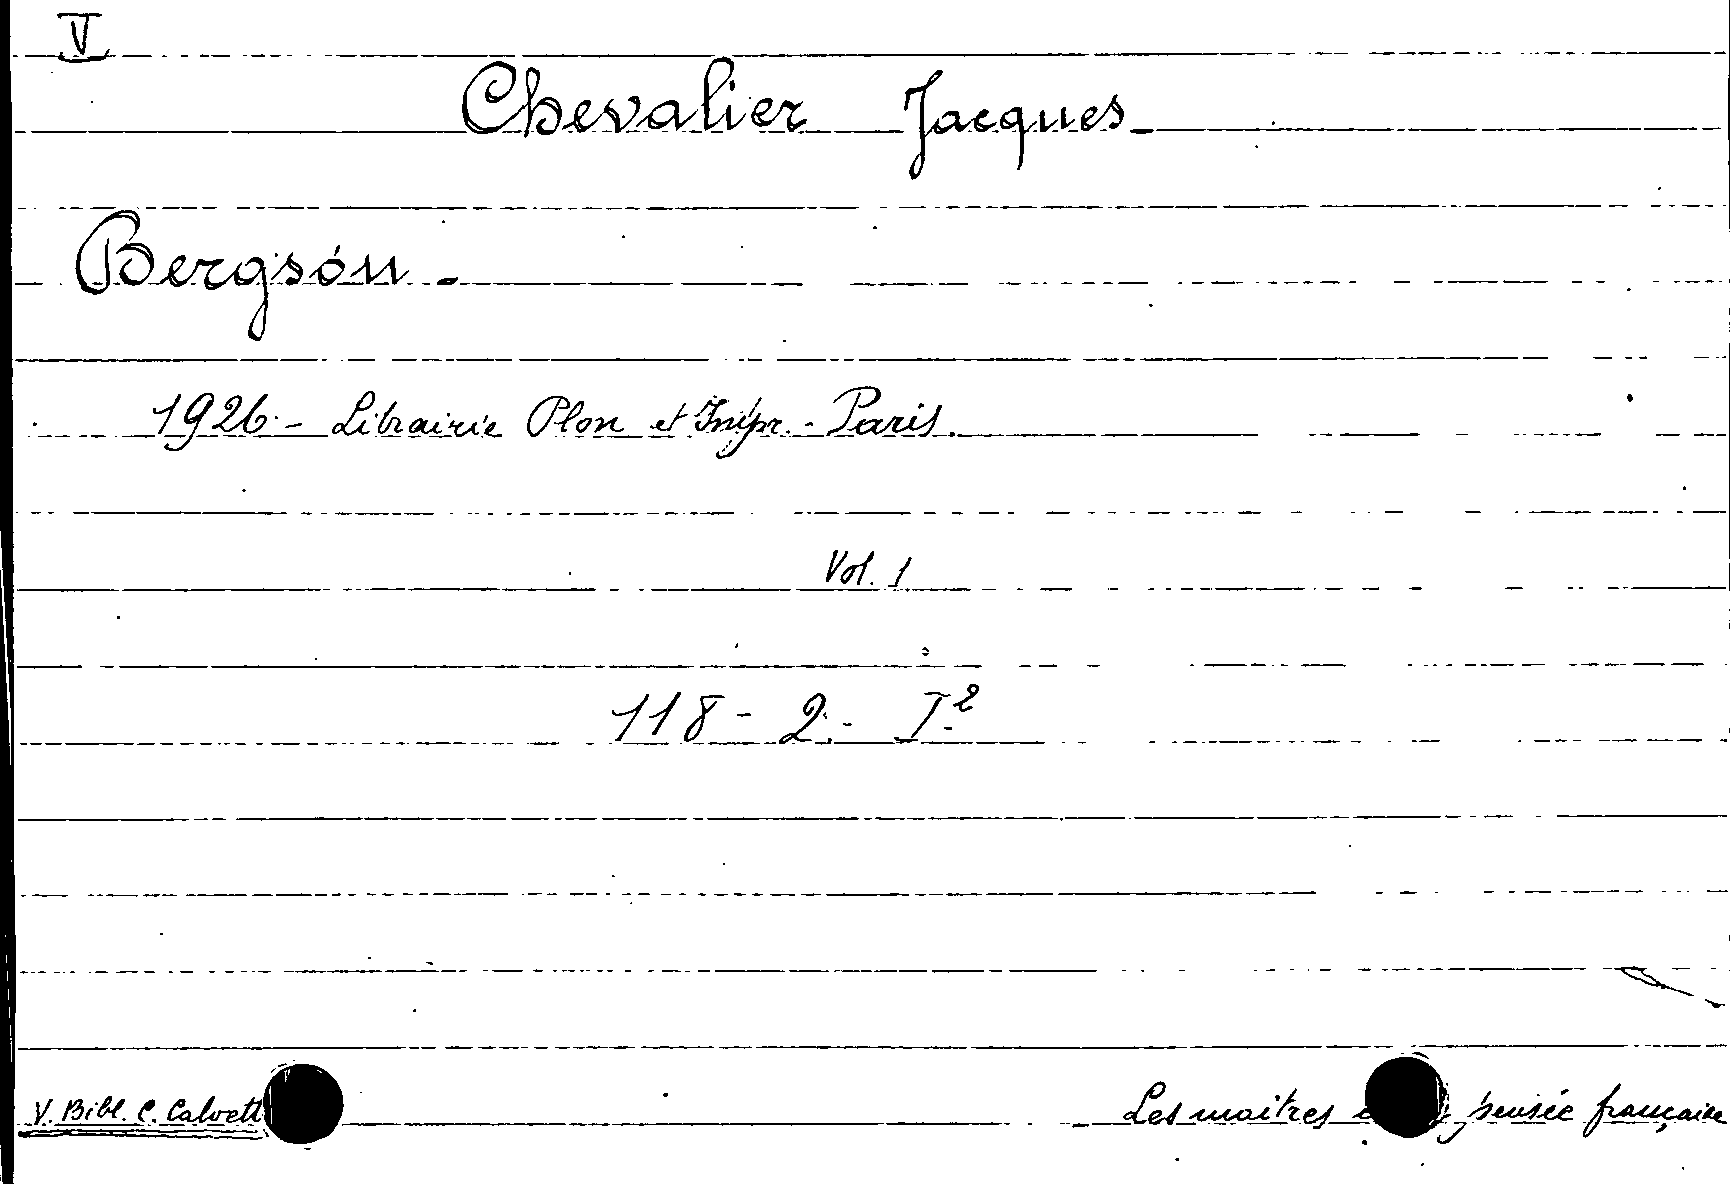 V
Chevalier Jacques-
Bergson-
1926- Librairie Plon et Impr.- Paris.
Vol. 1
118- 2.- I²
V. Bibl. C. Calvett
Les maitres pensée française